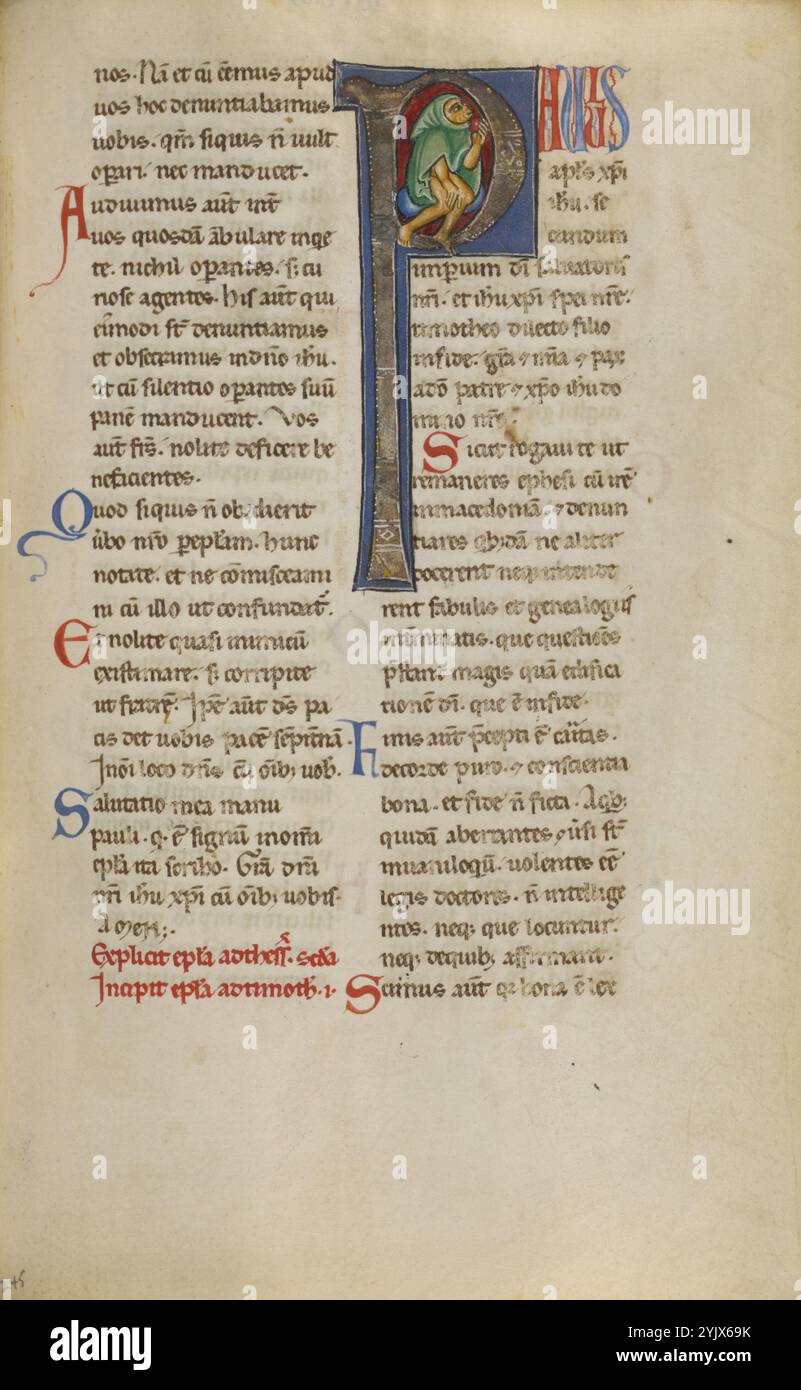 nos. Nā et cū ēemus apud
uos hoc denuntiabamus
uobis. qm̄ siquis n̄ uult
opari. nec manducet.
Audiuimus aūt int̄
uos quosdā ābulare inqe
te. nichil opantes. s; cu
riose agentes. His aūt qui
eiusmodi st̄ denuntiamus
et obsecramus in dn̄o ihū.
ut cū silentio opantes suū
panē manducent. Vos
aūt frs̄. nolite deficere be
neficientes.
Quod siquis n̄ obedierit
ūbo nr̄o p epl̄am. hunc
notate. et ne cōmisceami
ni cū illo ut confundat̄.
Et nolite quasi inimicū
existimare. s; corripite
ut fratrē. Ipē aūt ds̄ pa
cis det uobis pacē sēpit̄nā
In oī loco dn̄s cū oīb; uob.
Salutatio mea manu
pauli. q. ē signū in om̄i
epl̄a ita scribo. Grā dn̄i
nr̄i ihū xpī cū oīb; uobis.
Amen;.
Explicit epl̄a ad thess̄. scd̄a
Incipit epl̄a ad timoth. i.
PAULUS
apl̄s xpī
ihū. se
cundum
imperium dī saluatoris
nr̄i. et ihū xpī spei nr̄e.
timotheo dilecto filio
in fide. grā 7 mīa 7 pax
a dō patre 7 xpō ihū do
mino nr̄o.
Sicut rogaui te ut
remaneres ephesi cū irē
in macedoniā. 7 denun
tiares qb;dā ne aliter
docerent neq; intende
rent fabulis et genealogiis
int̄minatis. que questiōes
p̄stant magis quā edifica
tionē dī. que ē in fide.
Finis aūt p̄cepti ē caritas.
de corde puro. 7 conscientia
bona. et fide n̄ ficta. A qb;
quidā aberrantes 7 ūsi st̄
in uaniloqū. uolentes eē
legis doctores. n̄ intellige
ntes. neq; que locuntur.
neq; de quib; affirmant.
Scimus aūt qa bona ē lex
alamy
a
alamy
Image ID: 2YJX69K
www.alamy.com